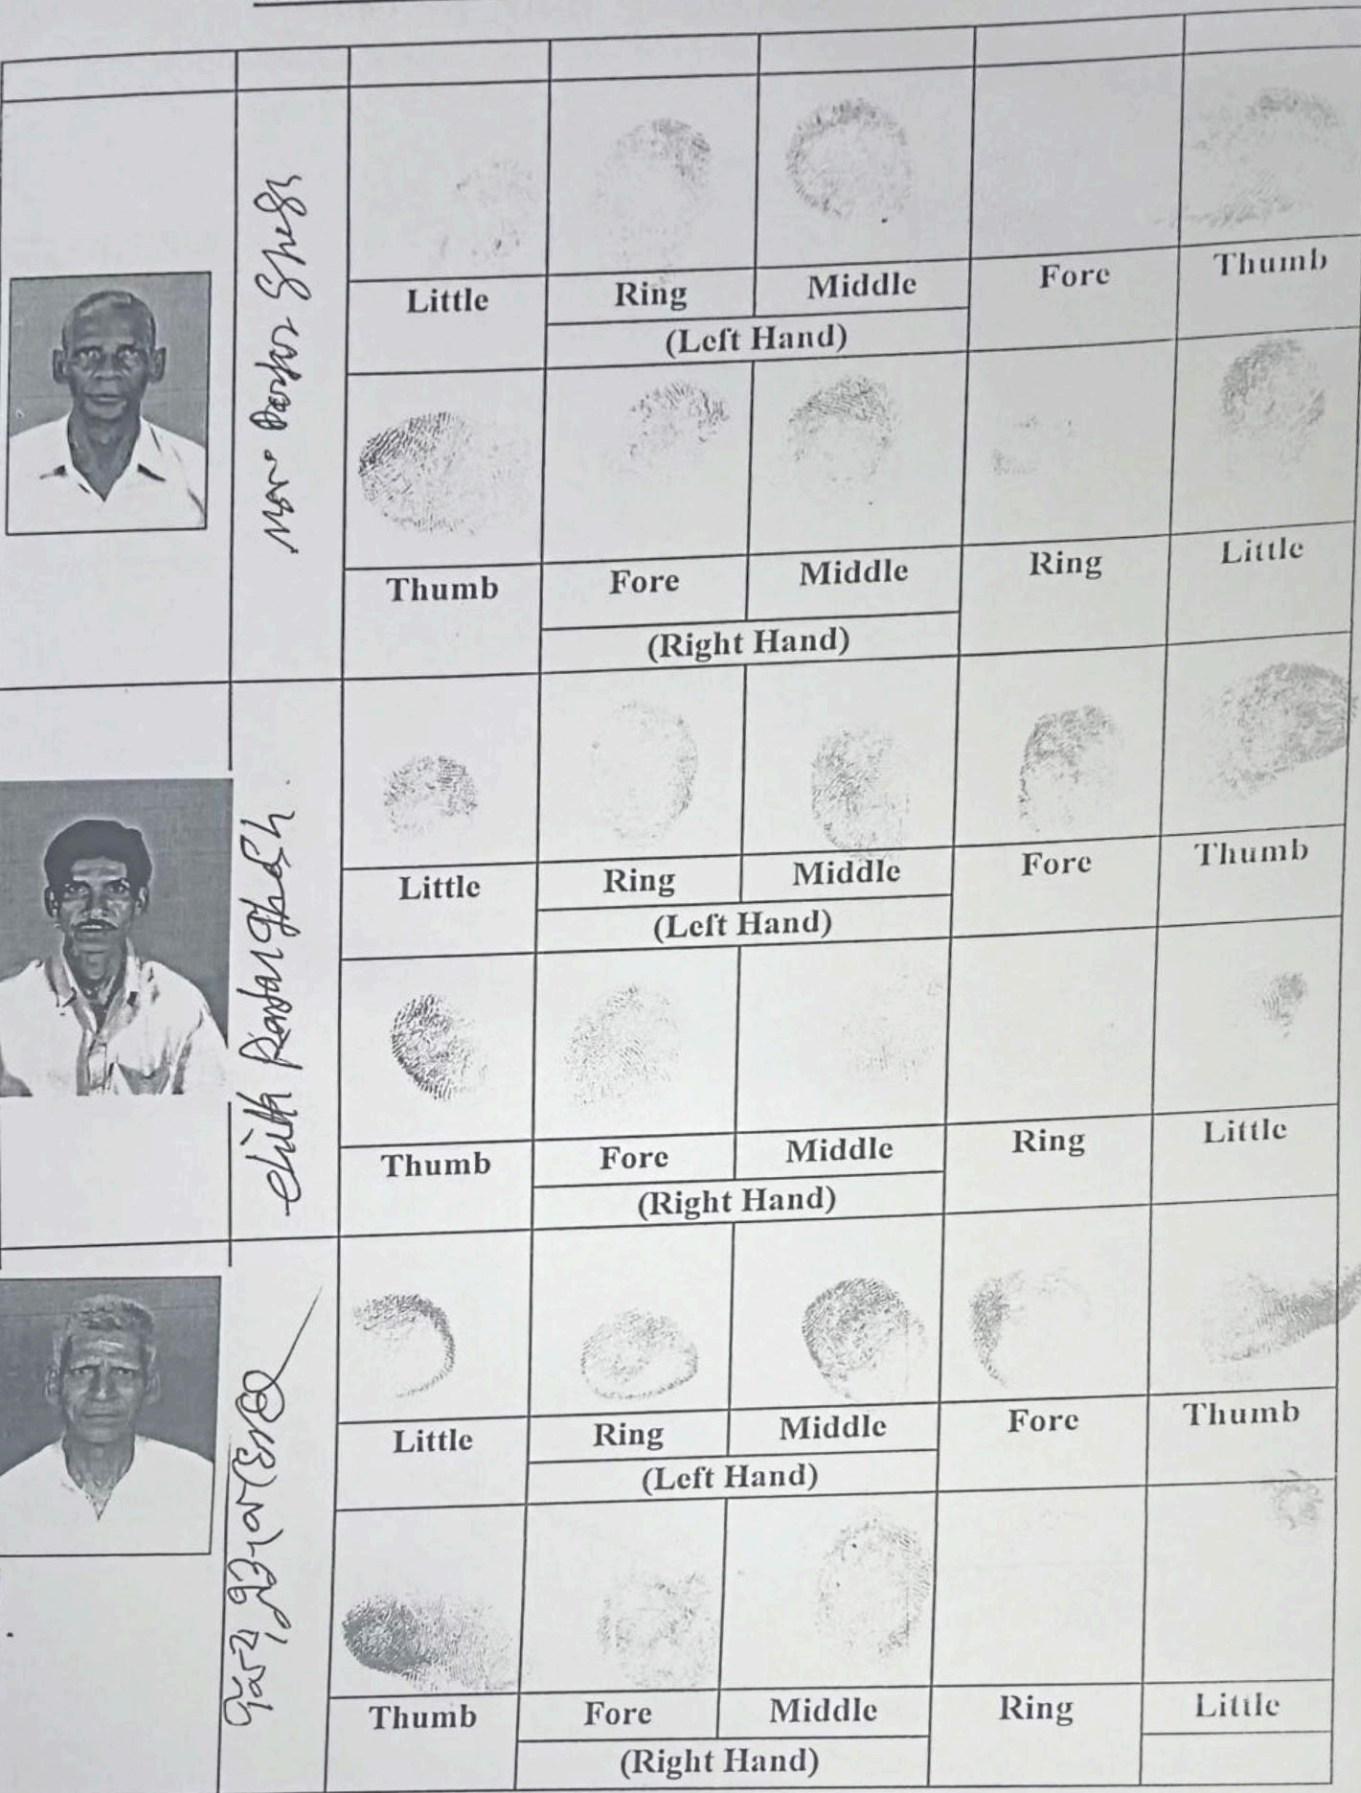 Little Ring Middle Fore Thumb
(Left Hand)
Thumb Fore Middle Ring Little
(Right Hand)
Little Ring Middle Fore Thumb
(Left Hand)
Thumb Fore Middle Ring Little
(Right Hand)
Little Ring Middle Fore Thumb
(Left Hand)
Thumb Fore Middle Ring Little
(Right Hand)